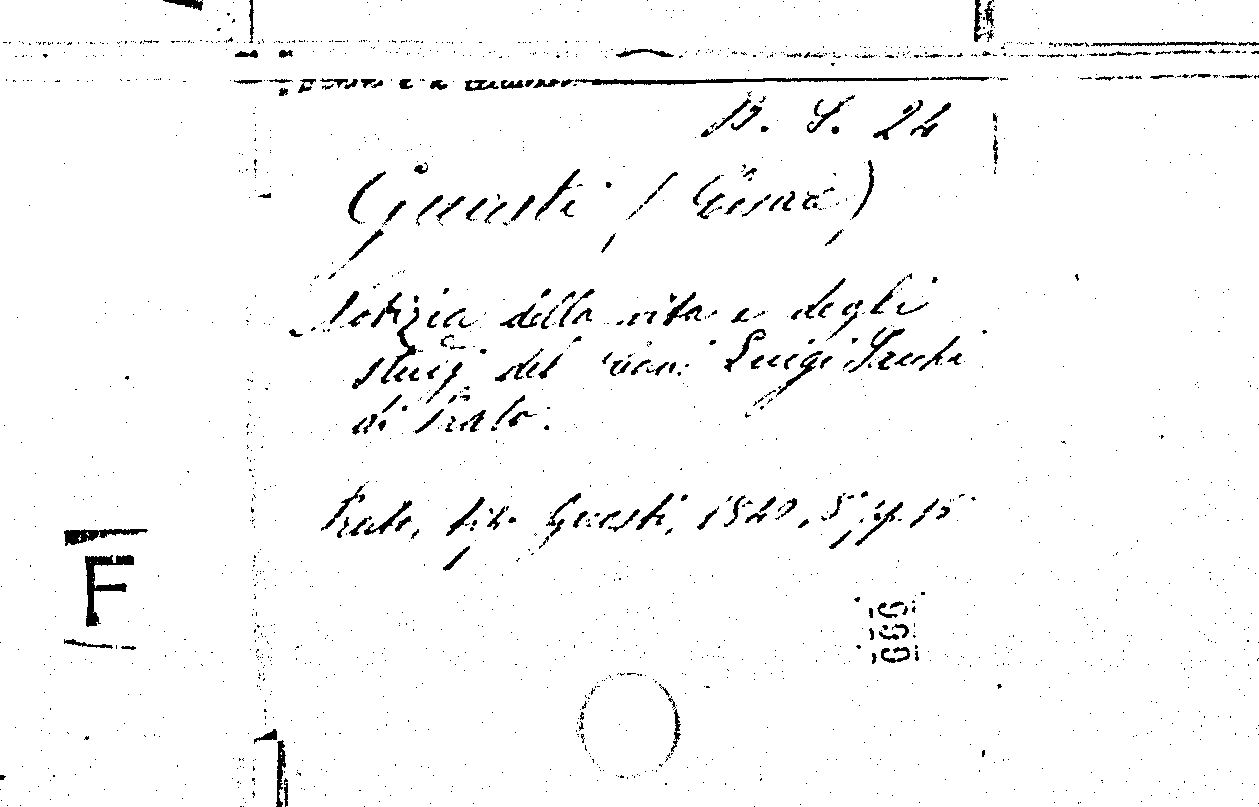 B. S. 24
Guasti (Cesare)
Notizia della vita e degli
studj del can. Luigi
di Prato.
Prato, tip. Guasti, 1840, 8°, pp. 15
F
666